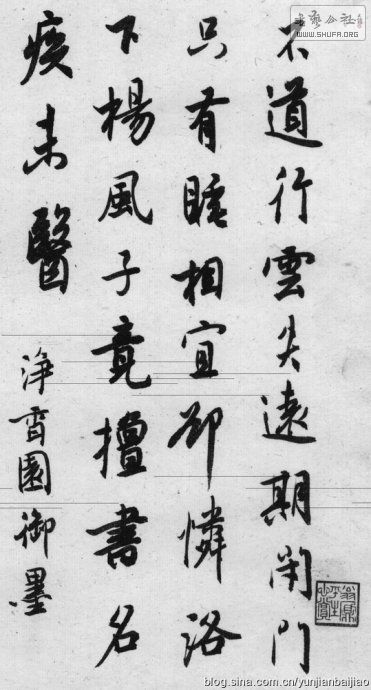 不道行雲失遠期閉門
只有睡相宜卻憐洛
下楊風子竟擅書名
疾未醫
淨香園御墨
WWW.SHUFA.ORG
blog.sina.com.cn/yunjianbaijiao